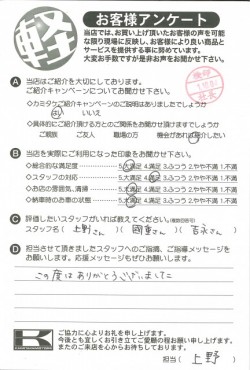 軽
お客様アンケート
当店では、お買い上げ頂いたお客様の声を可能
な限り現場に反映し、お客様により良い商品と
サービスを提供する事に努めています。
大変お手数ですが是非お声をお聞かせ下さい。
A 当店はご紹介を大切にしております。
ご紹介キャンペーンについてお聞かせ下さい。
◇カミタケご紹介キャンペーンのご説明はありましたでしょうか
はい いいえ
◇具体的にご紹介頂ける方とのご関係をお聞かせ頂けますでしょうか
ご親族 ご友人 職場の方 機会があれば紹介したい
B 当店を実際にご利用になった印象をお聞かせ下さい。
◇総合的な満足度 5.大満足 4.満足 3.ふつう 2.やや不満 1.不満
◇スタッフの対応 5.大満足 4.満足 3.ふつう 2.やや不満 1.不満
◇お店の雰囲気、清掃 5.大満足 4.満足 3.ふつう 2.やや不満 1.不満
◇納車時のお車の状態 5.大満足 4.満足 3.ふつう 2.やや不満 1.不満
C 評価したいスタッフがいれば教えてください。(複数回答可)
スタッフ名( 上野さん )( 國重さん )( 吉永さん )
D 担当させて頂きましたスタッフへのご指導、ご指摘メッセージを
お願いします。応援メッセージもぜひお願いします。
この度はありがとうございました
K
ご協力に心よりお礼を申し上げます。
今後とも宜しくお引き立てご愛顧の程お願い申し上げます。
またのご来店を心からお待ちしております。
担当( 上野 )